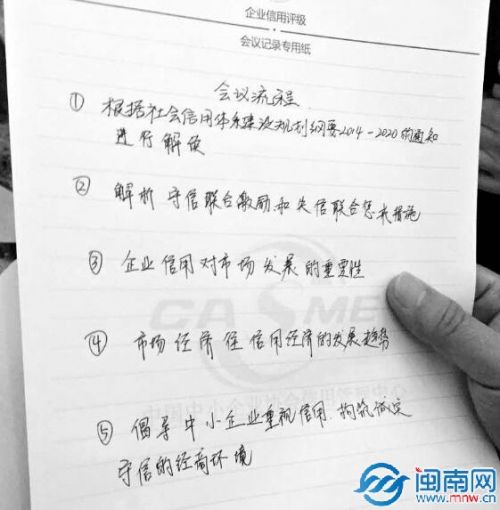 企业信用评级
会议记录专用纸
会议流程
① 根据社会信用体系建设规划纲要2014-2020的通知
进行解读
② 解析 守信联合激励和失信联合惩戒措施
③ 企业信用对市场发展的重要性
CASME
④ 市场经济 信用经济的发展趋势
⑤ 倡导中小企业重视信用 构筑诚
守信的经商环境
闽南网
www.mnw.cn